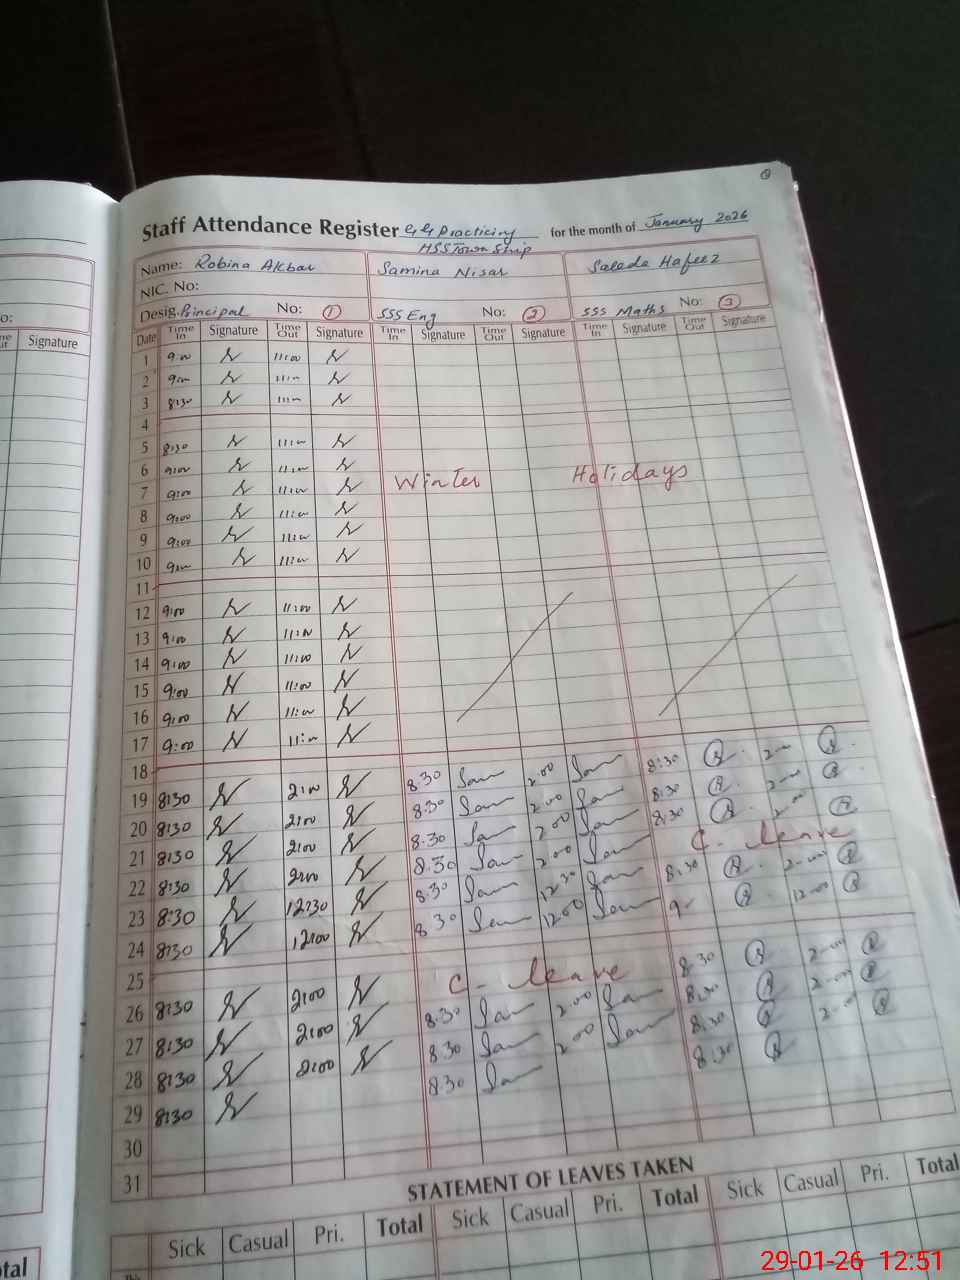 Staff Attendance Register G.G Practicing for the month of January 2026
HSS Town Ship
Name: Robina Akbar Samina Nisar Saeeda Hafeez
NIC. No:
Desig. Principal No: 1 SSS Eng No: 2 SSS Maths No: 3
Signature Date Time In Signature Time Out Signature Time In Signature Time Out Signature Time In Signature Time Out Signature
1 9:00 11:00
2 9:00 11:00
3 8:30 11:00
4
5 8:30 11:00
6 9:00 11:00
7 9:00 11:00 Winter Holidays
8 9:00 11:00
9 9:00 11:00
10 9:00 11:00
11
12 9:00 11:00
13 9:00 11:00
14 9:00 11:00
15 9:00 11:00
16 9:00 11:00
17 9:00 11:00
18
19 8:30 2:00 8:30 Sam 2:00 Sam 8:30 2:00
20 8:30 2:00 8:30 Sam 2:00 Sam 8:30 2:00
21 8:30 2:00 8:30 Sam 2:00 Sam 8:30 2:00
22 8:30 2:00 8:30 Sam 2:00 Sam C. leave
23 8:30 12:30 8:30 Sam 12:30 Sam 8:30 2:00
24 8:30 12:00 8:30 Sam 12:00 Sam 9 12:00
25
26 8:30 2:00 C. leave 8:30 2:00
27 8:30 2:00 8:30 Sam 2:00 Sam 8:30 2:00
28 8:30 2:00 8:30 Sam 2:00 Sam 8:30 2:00
29 8:30 8:30 Sam 8:30
30
31
STATEMENT OF LEAVES TAKEN
Sick Casual Pri. Total Sick Casual Pri. Total Sick Casual Pri. Total
29-01-26 12:51